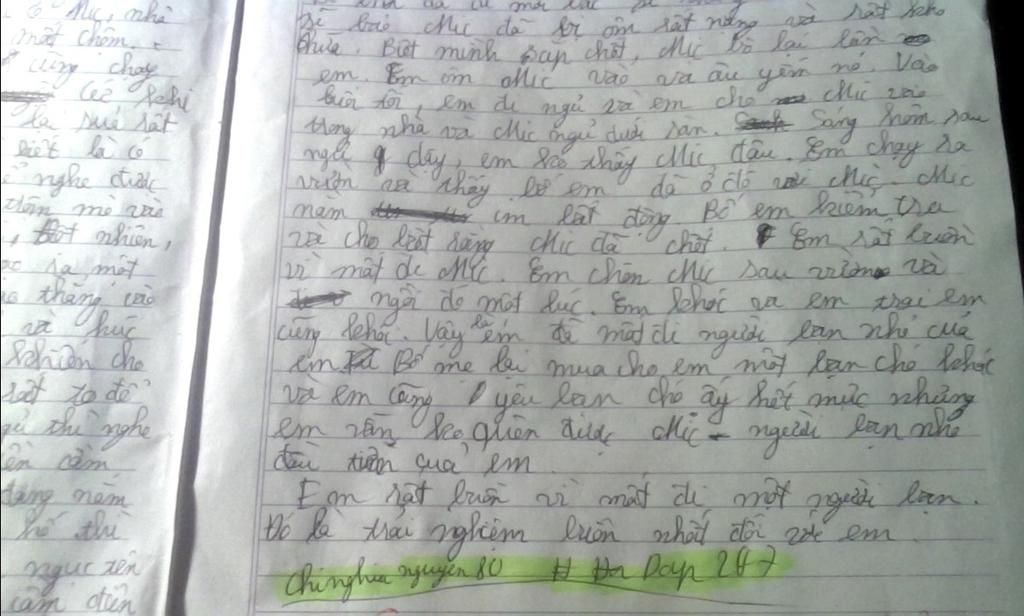 ở Mic, nhà
một hôm,
cũng chạy
Cứ khi
lạ sủa rất
biết là có
nghe được
, bỗt nhiên,
ra một
thằng
và húc
khiến cho
rất to để
thì nghe
cảm
đang nằm
thì
ngực
bảo Mic đã bị ốm rất nặng và rất khó
chữa. Biết mình sắp chết, Mic
em. Em ôm Mic vào và âu yếm nó. Vào
buổi tối, em đi ngủ và em cho Mic vào
trong nhà và Mic ngủ dưới sàn. Sáng hôm sau
ngủ dậy, em ko thấy Mic đâu. Em chạy ra
vườn và thấy bố em đã ở đó với Mic. Mic
nằm im bất động Bố em kiểm tra
và cho biết rằng Mic đã chết. Em rất buồn
vì mất đi Mic. Em chôn Mic sau vườn và
ngồi đó một lúc. Em khóc và em trai em
cũng khóc. Vậy là em đã mất đi người bạn nhỏ của
em Bố mẹ lại mua cho em một bạn chó khác
và em cũng yêu bạn chó ấy hết mực nhưng
em vẫn ko quên được Mic - người bạn nhỏ
đầu tiên quả em.
Em rất buồn vì mất đi một người bạn.
Đó là trải nghiệm buồn nhất đối với em.
Chinghia nguyen 80 Dap 247